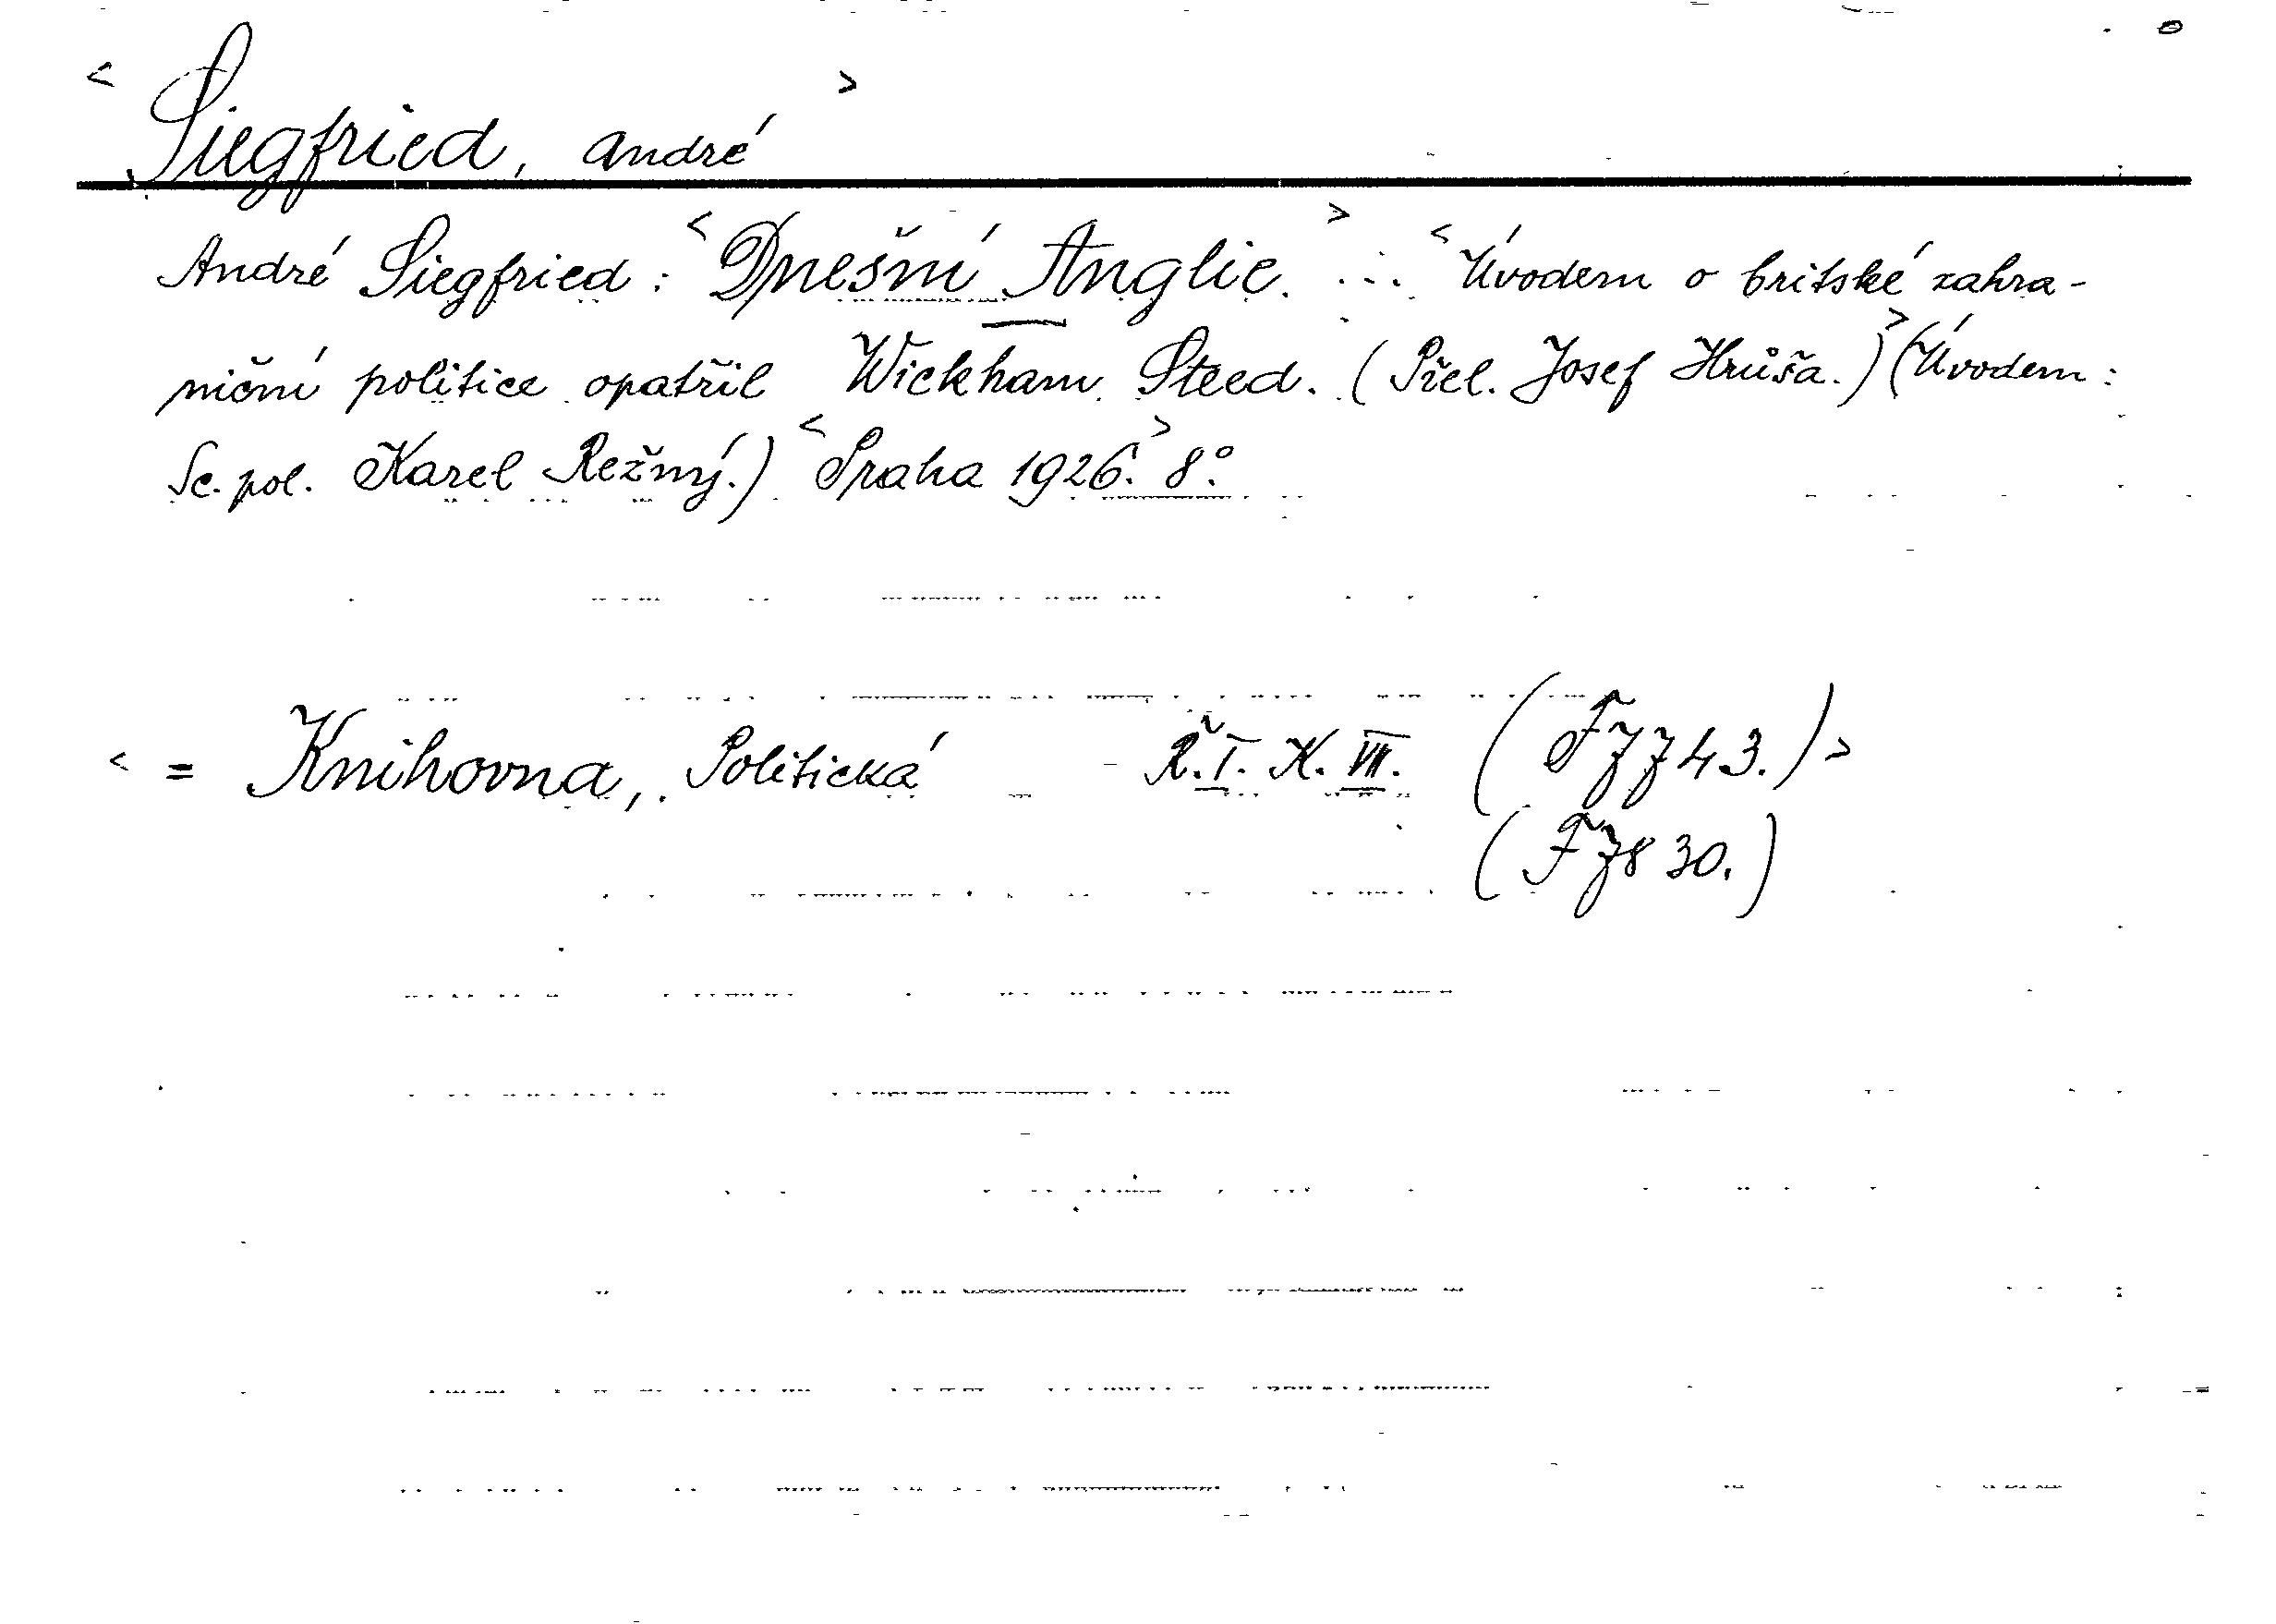 < Siegfried, André >
André Siegfried: <Dnešní Anglie.> ... <Úvodem o britské zahra-
niční politice opatřil Wickham Steed. (Přel. Josef Hrůša.)> (Úvodem:
Sc. pol. Karel Režný.) <Praha 1926.> 8°.
< = Knihovna, Politická Ř. I. K. VII. (F 7743.) >
(F 7830.)